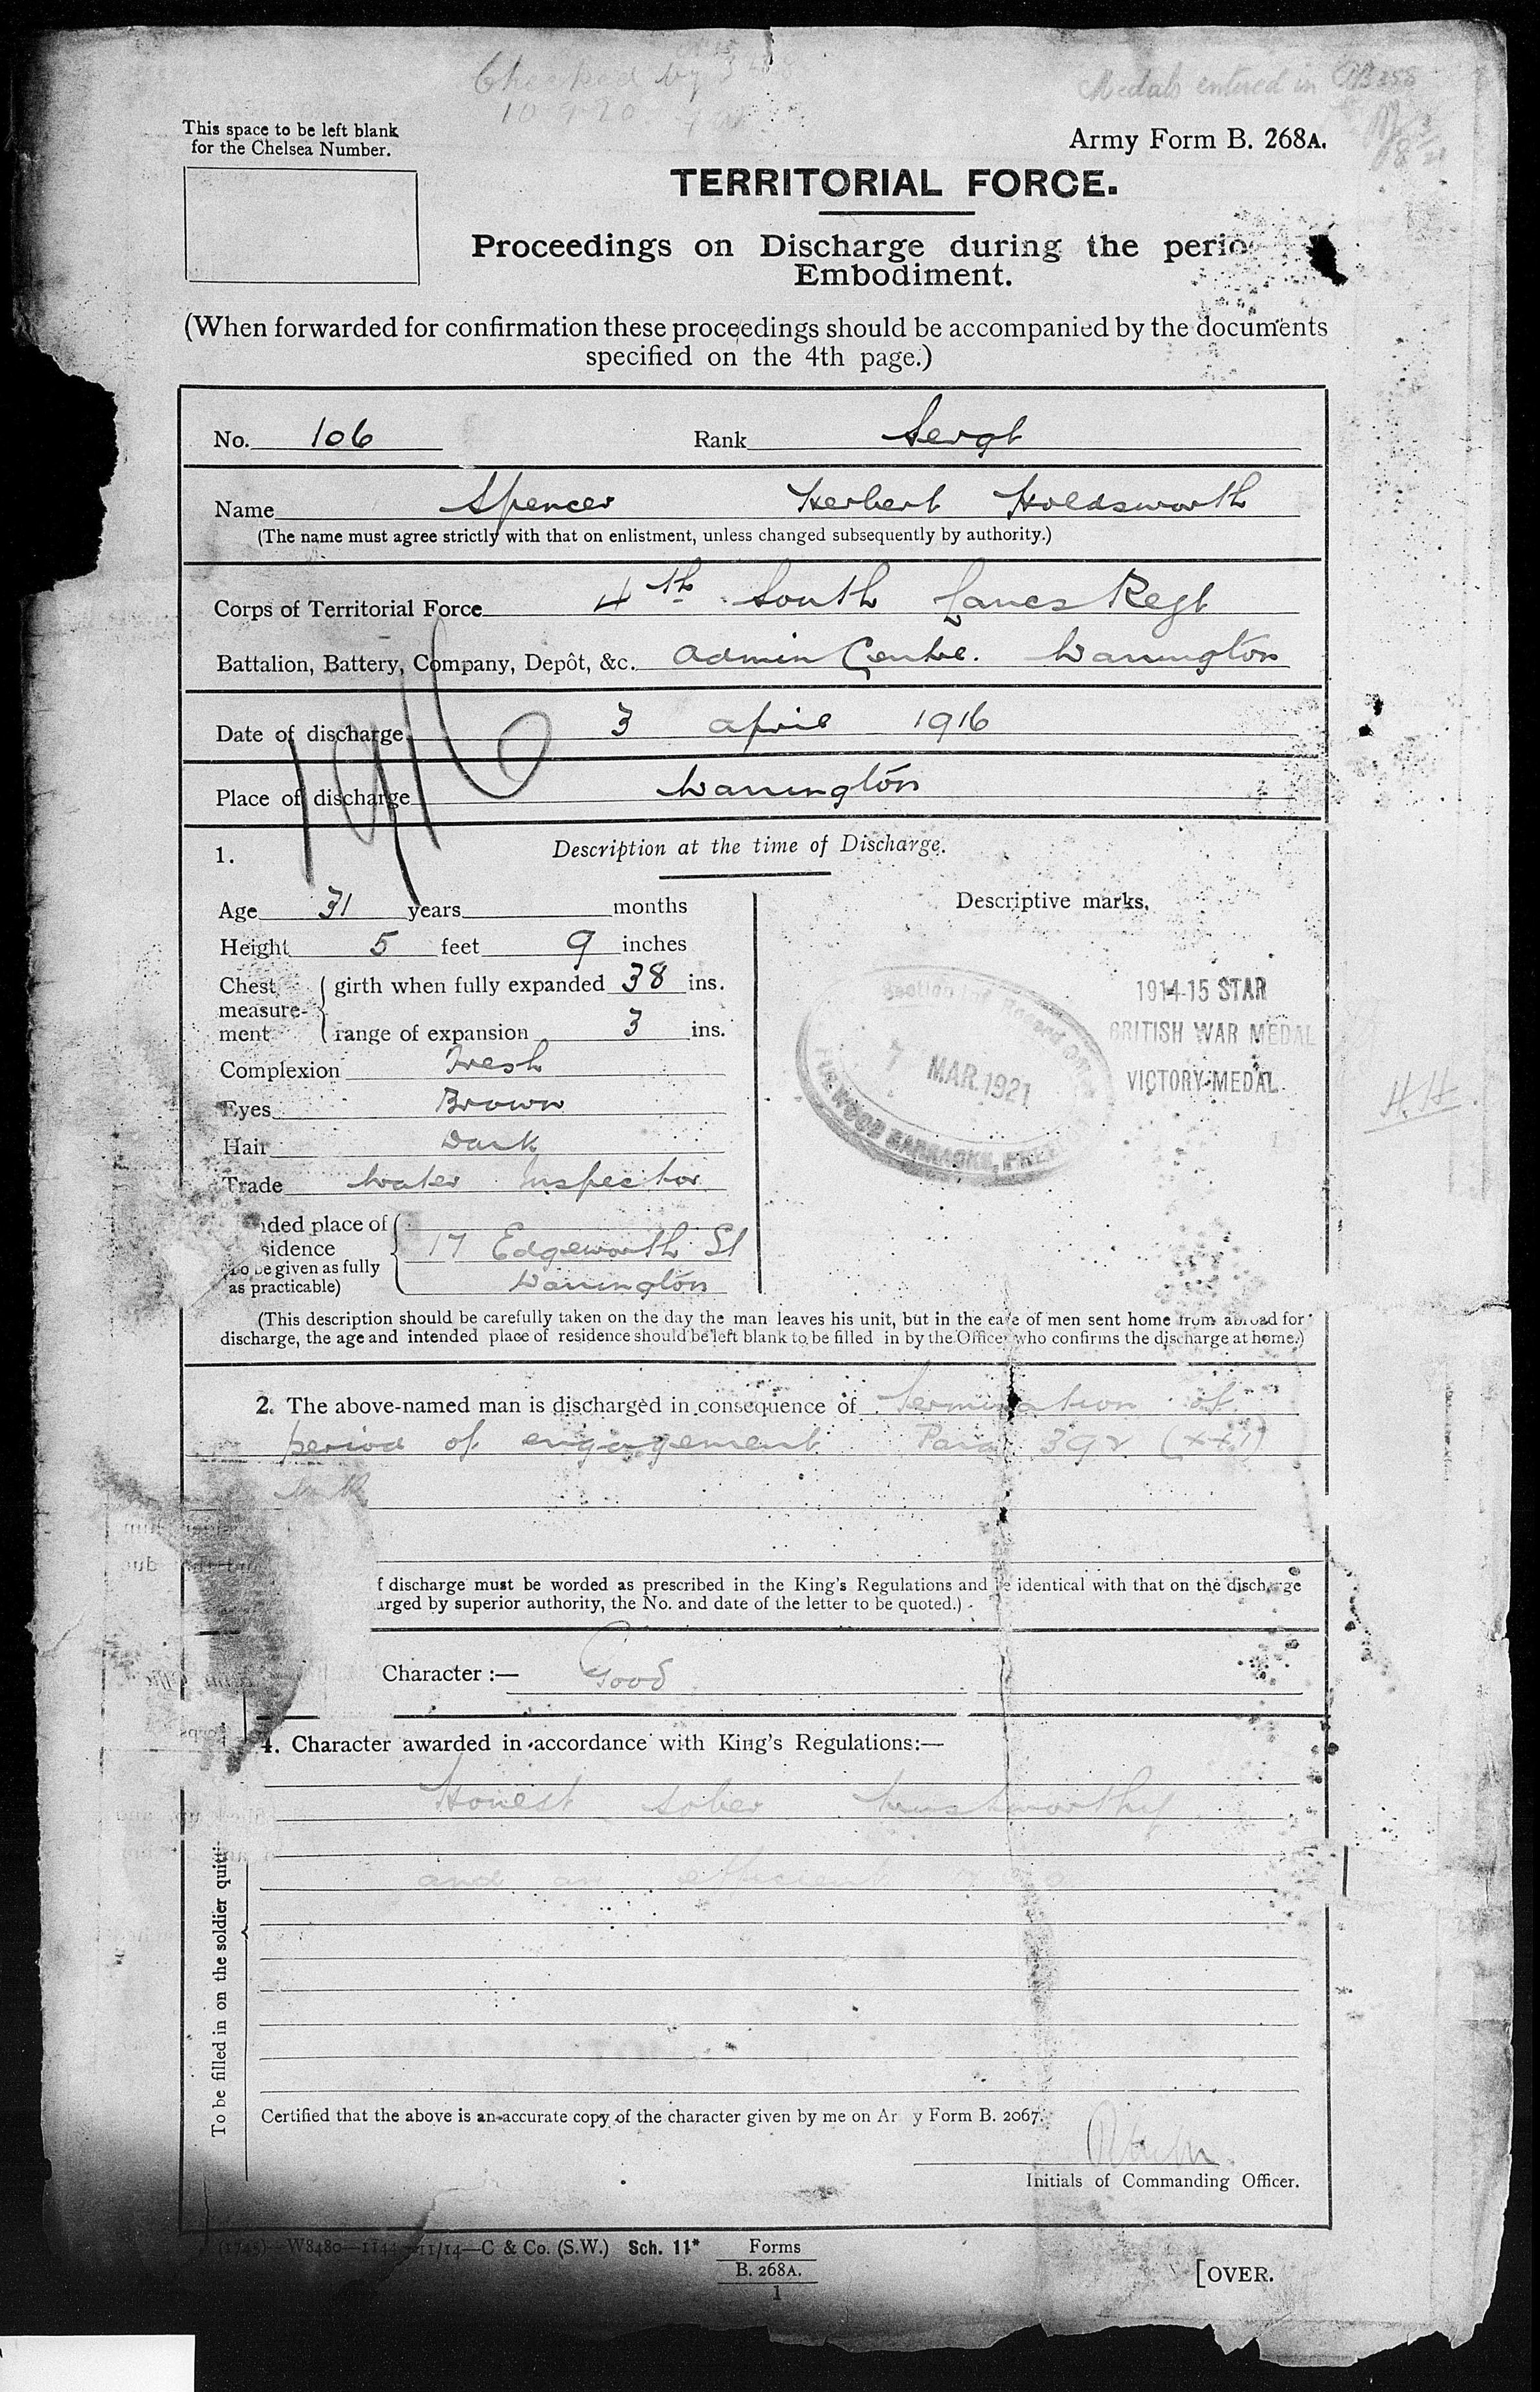 Checked by
10-9-20
Medals entered in
This space to be left blank
for the Chelsea Number.
Army Form B. 268A.
TERRITORIAL FORCE.
Proceedings on Discharge during the perio
Embodiment.
(When forwarded for confirmation these proceedings should be accompanied by the documents
specified on the 4th page.)
No. 106 Rank Sergt
Name Spencer Herbert Holdsworth
(The name must agree strictly with that on enlistment, unless changed subsequently by authority.)
Corps of Territorial Force 4th South Lancs Regt
Battalion, Battery, Company, Depôt, &c. Admin Centre. Warrington
Date of discharge 3 April 1916
1916
Place of discharge Warrington
1. Description at the time of Discharge.
Age 31 years months
Height 5 feet 9 inches
Chest measure-ment { girth when fully expanded 38 ins.
range of expansion 3 ins.
Complexion Fresh
Eyes Brown
Hair Dark
Trade Water Inspector
nded place of
sidence
(To be given as fully
as practicable)
17 Edgeworth St
Warrington
Descriptive marks.
1914-15 STAR
BRITISH WAR MEDAL
VICTORY MEDAL
7 MAR. 1921
BARRACKS, PRESTON
H.H.
(This description should be carefully taken on the day the man leaves his unit, but in the case of men sent home from abroad for
discharge, the age and intended place of residence should be left blank to be filled in by the Officer who confirms the discharge at home.)
2. The above-named man is discharged in consequence of termination of
period of engagement Para 392 (xxi)
f discharge must be worded as prescribed in the King's Regulations and be identical with that on the discharge
arged by superior authority, the No. and date of the letter to be quoted.)
Character :— Good
4. Character awarded in accordance with King's Regulations:—
Honest sober trustworthy
and an efficient
To be filled in on the soldier quitti
Certified that the above is an accurate copy of the character given by me on Ar y Form B. 2067.
Initials of Commanding Officer.
(1745)—W8480—1144—11/14—C & Co. (S.W.) Sch. 11* Forms
B. 268A.
1
[OVER.